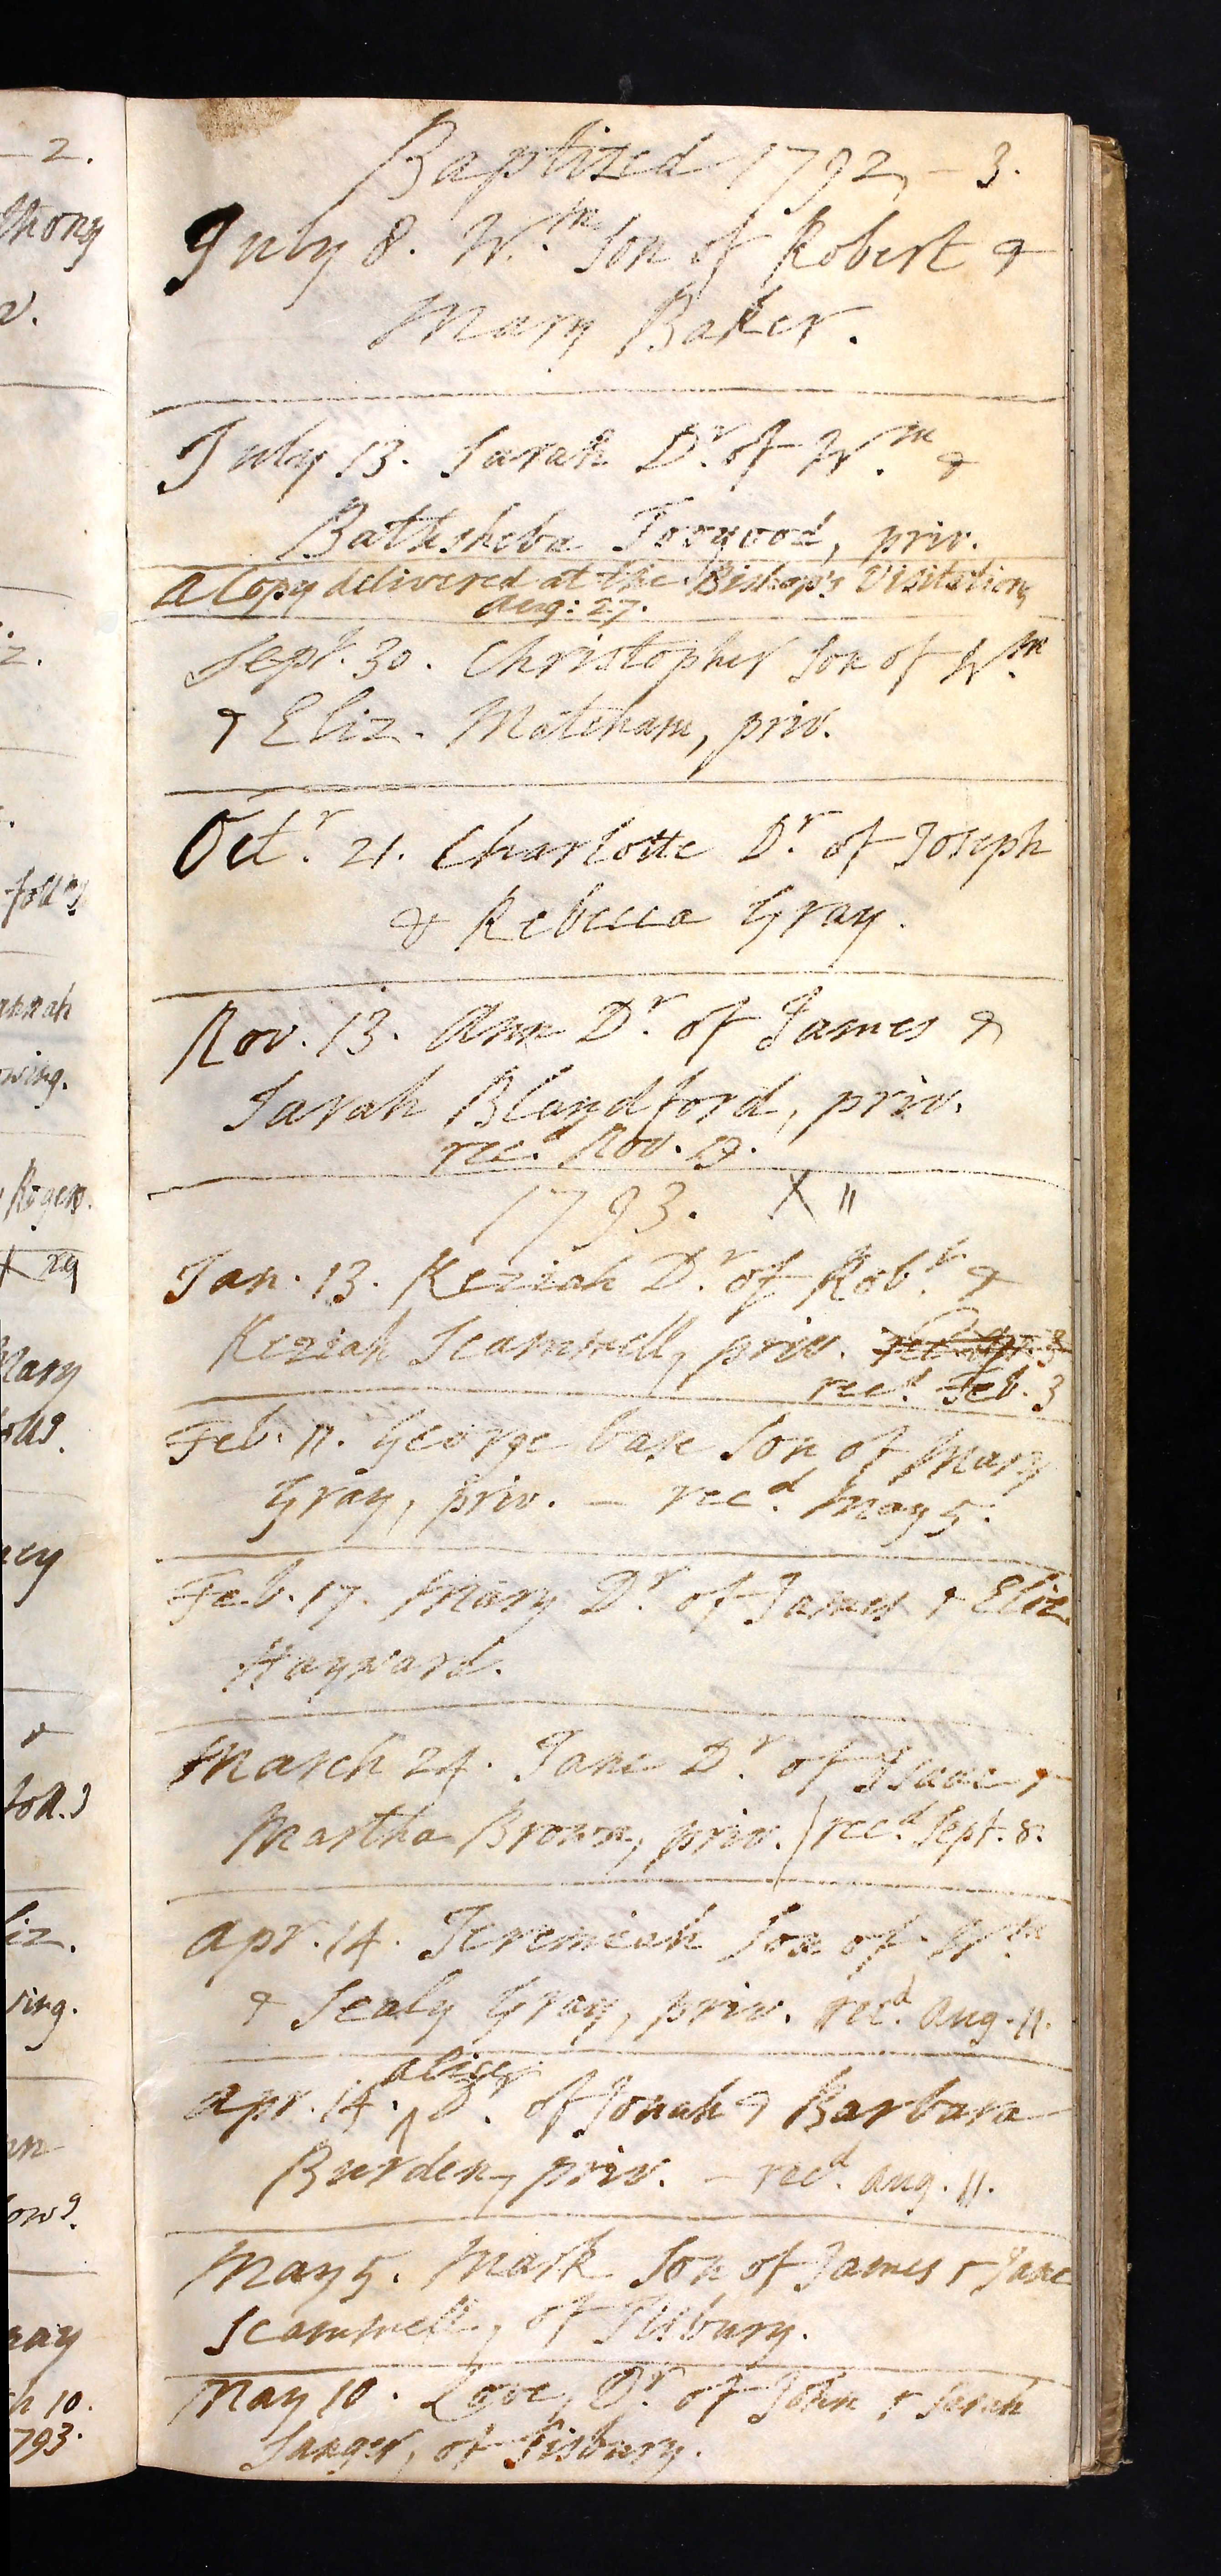 Baptized 1792, – 3.
July 8. Wm. Son of Robert &
Mary Baker.
July 13. Sarah Dr. of Wm. &
Bathsheba Toogood, priv.
A Copy delivered at the Bishop's Visitation,
Aug: 27.
Sept. 30. Christopher Son of Wm.
& Eliz. Matcham, priv.
Octr. 21. Charlotte Dr. of Joseph
& Rebecca Gray.
Nov. 13. Ann Dr. of James &
Sarah Blandford, priv.
recd. Nov.
1793. X "
Jan. 13. Keziah Dr. of Robt. &
Keziah Scammell, priv.
recd. Feb. 3
Feb. 11. George base Son of Mary
Gray, priv. – recd. May 5.
Feb. 17. Mary Dr. of James & Eliz.
Hayward.
March 24. Jane Dr. of Isaac &
Martha Brown, priv. / recd. Sept. 8.
Apr. 14. Jeremiah Son of Wm
& Sealy Gray, priv. recd. Aug. 11.
Apr. 14. ^ Alice Dr. of Jonah & Barbara
Burden, priv. – recd. Aug. 11.
May 5. Mark Son of James & Jane
Scammell, of Tisbury.
May 10. Love, Dr. of John & Sarah
Sanger, of Tisbury.